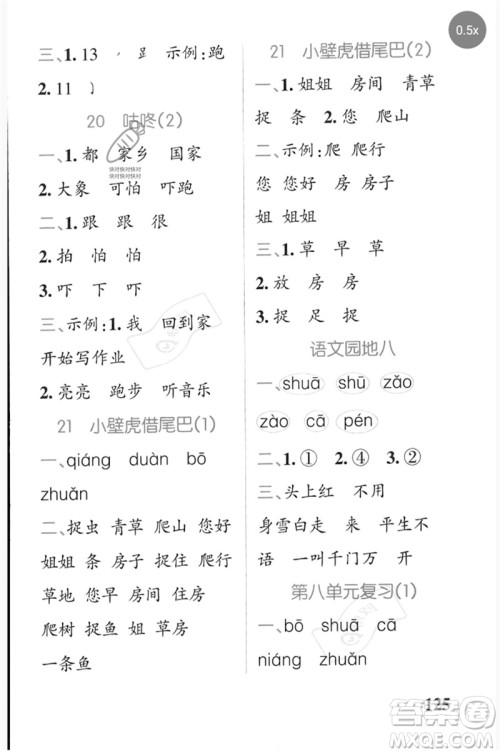 三、1. 13 𧾷 示例:跑
2. 11 丿
20 咕咚(2)
一、1. 都 家乡 国家
2. 大象 可怕 吓跑
二、1. 跟 跟 很
2. 拍 怕 怕
3. 吓 下 吓
三、示例:1. 我 回到家
开始写作业
2. 亮亮 跑步 听音乐
21 小壁虎借尾巴(1)
一、qiáng duàn bō
zhuǎn
二、捉虫 青草 爬山 您好
姐姐 条 房子 捉住 爬行
草地 您早 房屋 房间
爬树 捉鱼 姐妹 草房
一条鱼
21 小壁虎借尾巴(2)
一、1. 姐姐 房间 青草
捉 条 2. 您 爬山
二、示例:爬 爬行
您 您好 房 房子
姐 姐姐
三、1. 草 早 草
2. 放 房 房
3. 捉 足 捉
语文园地八
一、shuā shū zǎo
zào cā pén
二、1. ① 2. ④ 3. ②
三、头上红 不用
身雪白走 来 平生不
语 一叫千门万 开
第八单元复习(1)
一、bō shuā cā
niáng zhuǎn
125
0.5x
快对快对快对
快对快对快对
答案圈
MXQE.COM